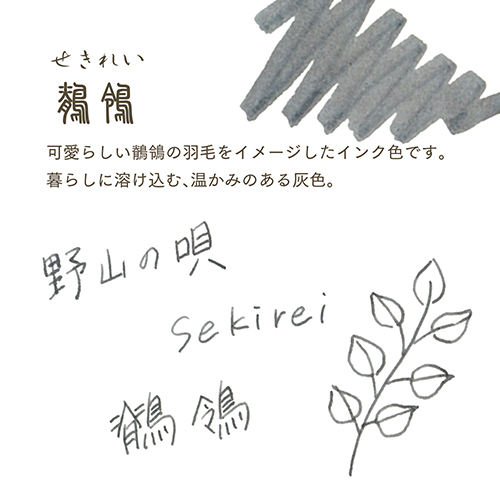 せきれい
鶺鴒
可愛らしい鶺鴒の羽毛をイメージしたインク色です。
暮らしに溶け込む、温かみのある灰色。
野山の唄
sekirei
鶺鴒